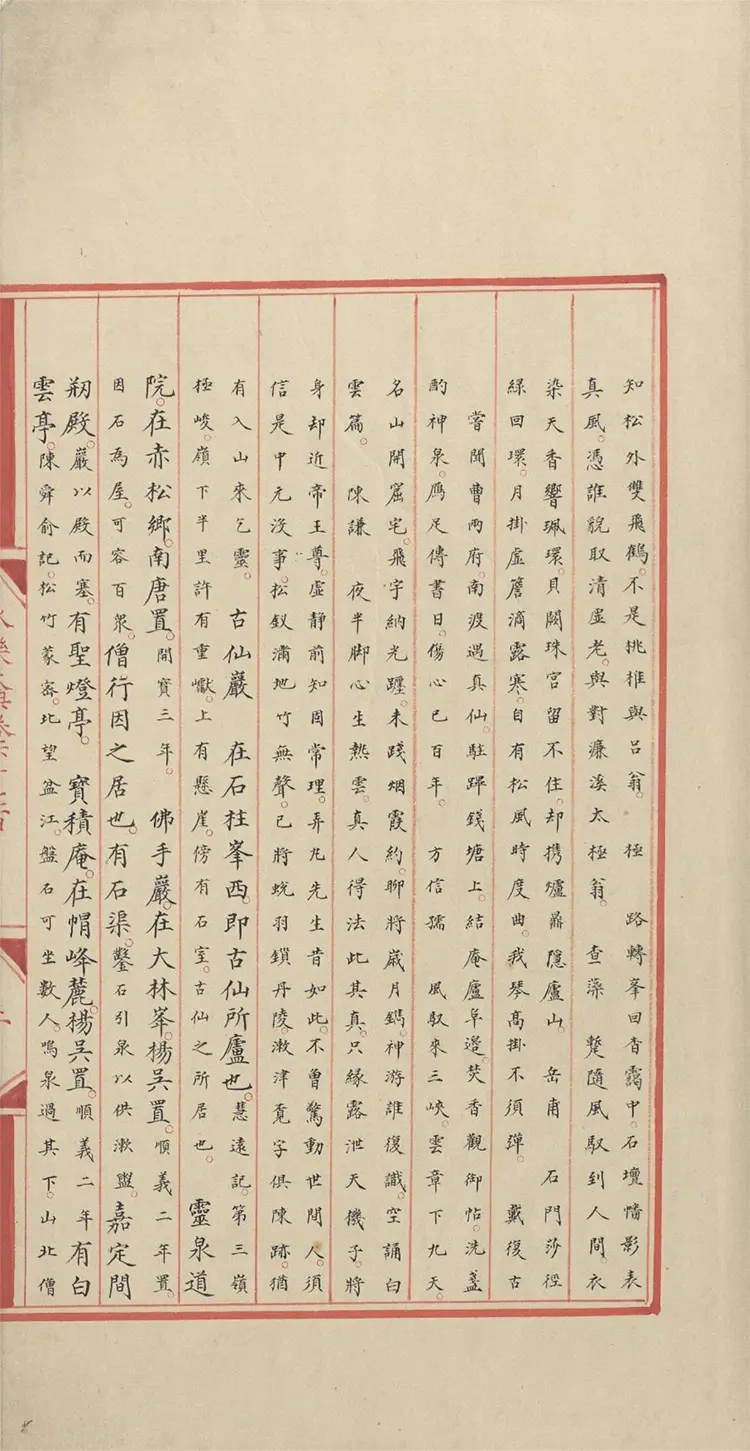 知松外雙飛鶴。不是挑椎與呂翁。 極 路轉峯回杳靄中。石壇幡影表
真風。憑誰貌取清虛老。與對濂溪太極翁。 查藻 鷖隨風馭到人間。衣
染天香響珮環。貝闕珠宮留不住。却携爐鼎隱廬山。 岳甫 石門莎徑
綠回環。月掛虛簷滴露寒。自有松風時度曲。我琴高掛不須彈。 戴復古
嘗聞曹兩府。南渡遇真仙。駐蹕錢塘上。結庵廬阜邊。焚香觀御帖。洗盞
酌神泉。鴈足傳書日。傷心已百年。 方信孺 風馭來三峽。雲章下九天。
名山開窟宅。飛宇納光躔。未踐烟霞約。聊將歲月鐫。神游誰復識。空誦白
雲篇。 陳謙 夜半脚心生熱雲。真人得法此其真。只緣露泄天機子。將
身却近帝王尊。虛靜前知固常理。弄丸先生昔如此。不曾驚動世間人。須
信是中元沒事。松釵滿地竹無聲。已將蛻羽鎖丹陵。漱津竟字俱陳跡。猶
有入山來乞靈。 古仙巖 在石柱峯西。即古仙所廬也。慧遠記。第三嶺
極峻。嶺下半里許有重巘。上有懸崖。傍有石室。古仙之所居也。 靈泉道
院。在赤松鄉。南唐置。開寶三年。 佛手巖。在大林峯。楊吳置。順義二年置。
因石為屋。可容百衆。僧行因之居也。有石渠。鑿石引泉以供漱盥。嘉定間
剏殿。巖以殿而塞。有聖燈亭。 寶積庵。在帽峰麓。楊吳置。順義二年有白
雲亭。陳舜俞記。松竹蒙密。北望盆江。盤石可坐數人。鳴泉過其下。山北僧